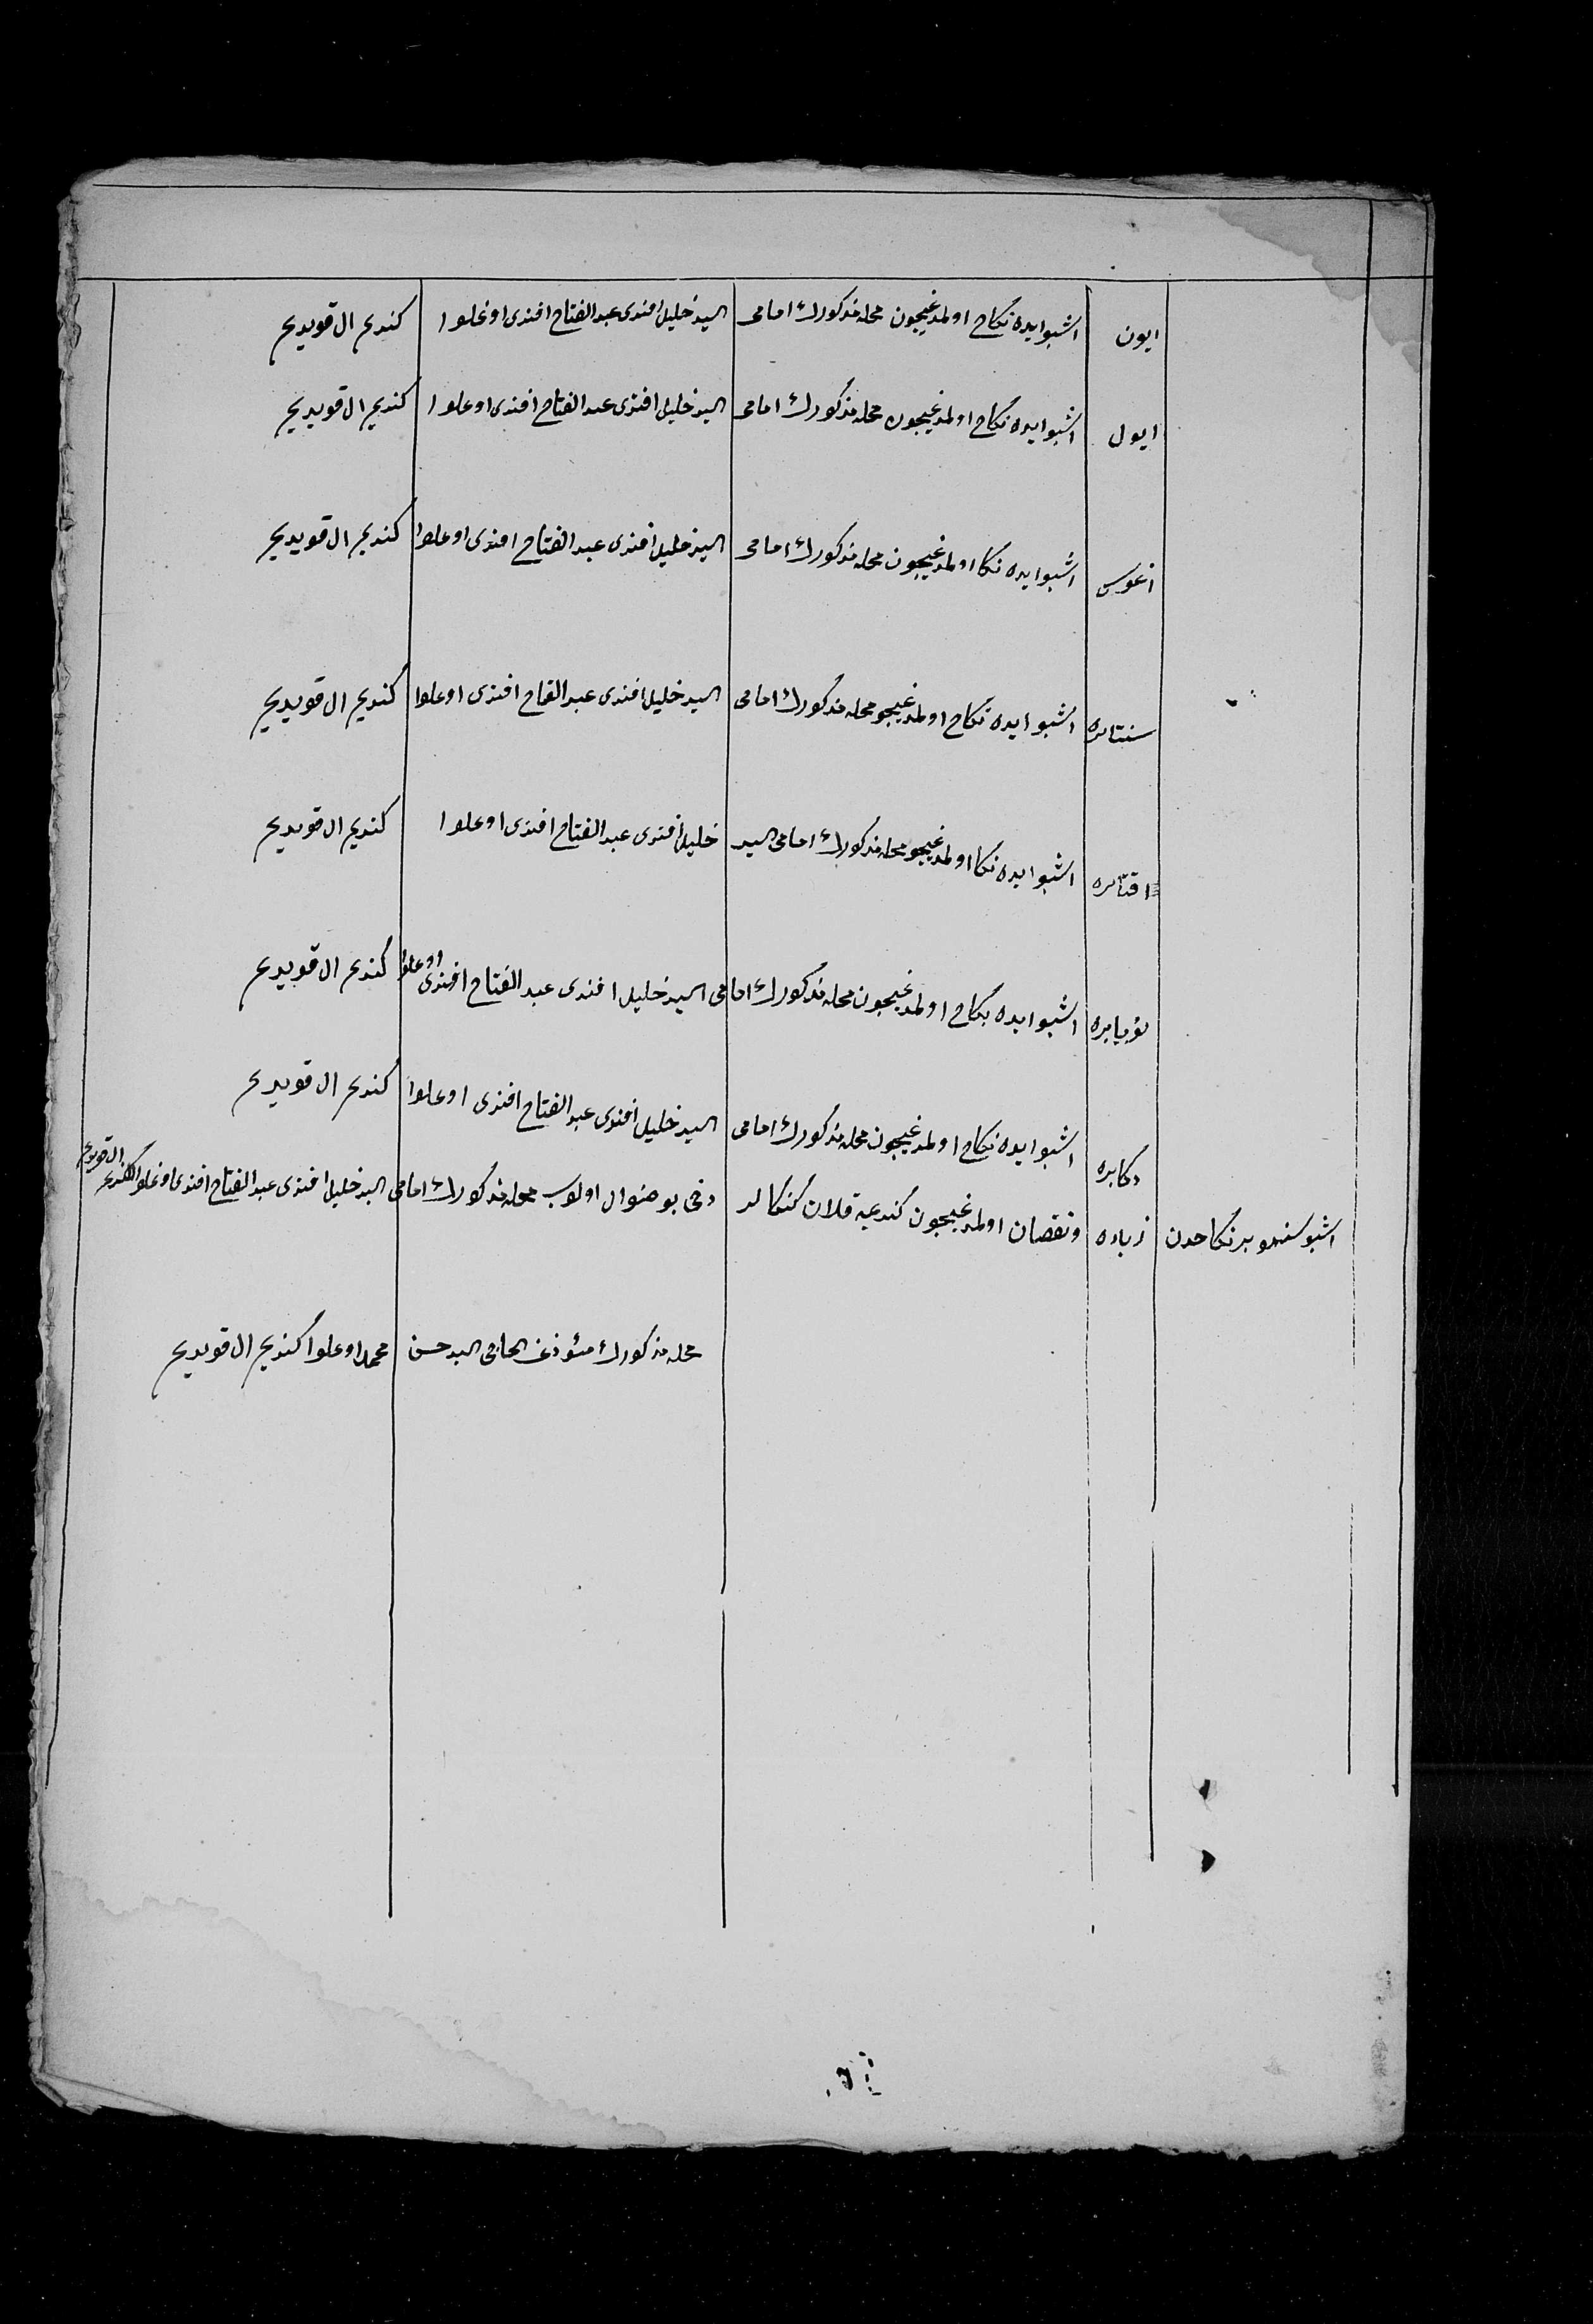 ايون اشبو ايده نكاح اولمدغيچون محله مذكورك امامى السيد خليل افندى عبد الفتاح افندى اوغلوا كنديم ال قويديم
ايول اشبو ايده نكاح اولمدغيچون محله مذكورك امامى السيد خليل افندى عبد الفتاح افندى اوغلوا كنديم ال قويديم
اغوس اشبو ايده نكا اولمدغيچون محله مذكورك امامى السيد خليل افندى عبد الفتاح افندى اوغلوا كنديم ال قويديم
سنتابره اشبو ايده نكاح اولمدغيچو محله مذكورك امامى السيد خليل افندى عبد الفتاح افندى اوغلوا كنديم ال قويديم
اقتابره اشبو ايده نكا اولمدغيچو محله مذكورك امامى السيد خليل افندى عبد الفتاح افندى اوغلوا كنديم ال قويديم
نويابره اشبو ايده نكاح اولمدغيچون محله مذكورك امامى السيد خليل افندى عبد الفتاح افندى اوغلوا كنديم ال قويديم
دكابره اشبو ايده نكاح اولمدغيچون محله مذكورك امامى السيد خليل افندى عبد الفتاح افندى اوغلوا كنديم ال قويديم
اشبو سنه‌ده بر نكاحدن زياده و نقصان اولمدغيچون دخى بو منوال اولوب محله مذكورك امامى السيد خليل افندى عبد الفتاح افندى اوغلوا كنديم ال قويديم
محله مذكورك مئوذن الحاجى السيد حسن محمد اوغلوا كنديم ال قويديم